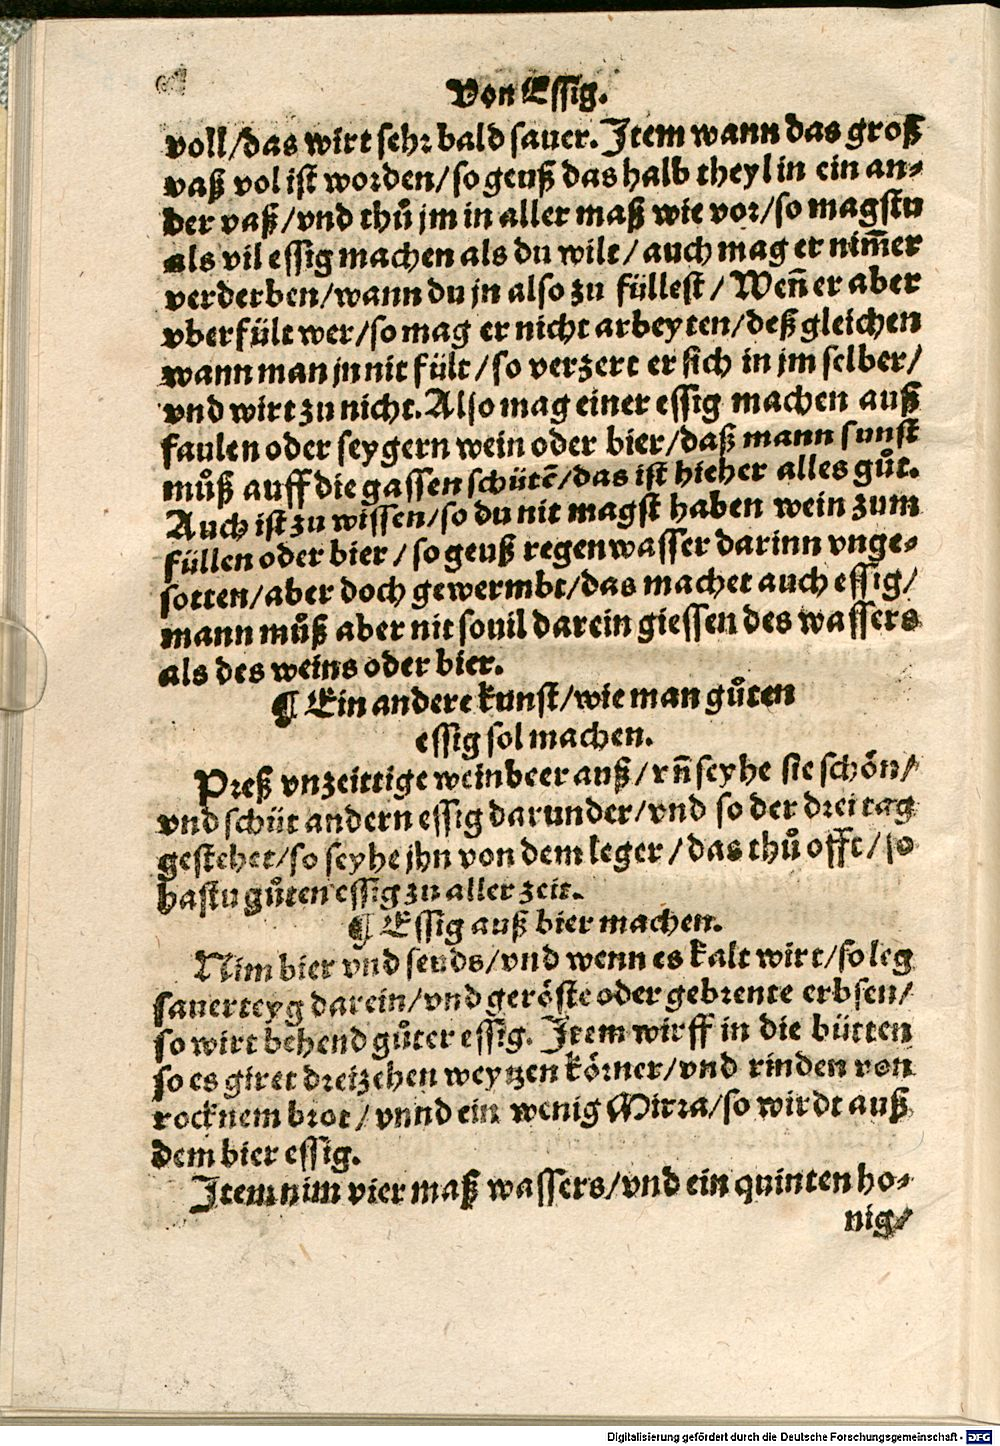 Von Essig.
voll/das wirt sehr bald sauer. Jtem wann das groß
vaß vol ist worden/so geuß das halb theyl in ein an-
der vaß/vnd thů jm in aller maß wie vor/so magstu
als vil essig machen als du wilt/auch mag er nim̃er
verderben/wann du jn also zu füllest/Weñ er aber
vberfült wer/so mag er nicht arbeyten/deßgleichen
wann man jn nit fült/so verzert er sich in jm selber/
vnd wirt zu nicht. Also mag einer essig machen auß
faulen oder seygern wein oder bier/daß mann sunst
můß auff die gassen schütẽ/das ist hieher alles gůt.
Auch ist zu wissen/so du nit magst haben wein zum
füllen oder bier/so geuß regenwasser darinn vnge-
sotten/aber doch gewermbt/das machet auch essig/
mann můß aber nit souil darein giessen des wassers
als des weins oder bier.
¶ Ein andere kunst/wie man gůten
essig sol machen.
Preß vnzeittige weinbeer auß/vñ seyhe sie schön/
vnd schüt andern essig darunder/vnd so der drei tag
gestehet/so seyhe jhn von dem leger/das thů offt/so
hastu gůten essig zu aller zeit.
¶ Essig auß bier machen.
Nim bier vnd seuds/vnd wenn es kalt wirt/so leg
sauerteyg darein/vnd geröste oder gebrente erbsen/
so wirt behend gůter essig. Jtem wirff in die bütten
so es giret dreizehen weytzen körner/vnd rinden von
rocknem brot/vnnd ein wenig Mirra/so wirdt auß
dem bier essig.
Jtem nim vier maß wassers/vnd ein quinten ho-
nig/
Digitalisierung gefördert durch die Deutsche Forschungsgemeinschaft - DFG